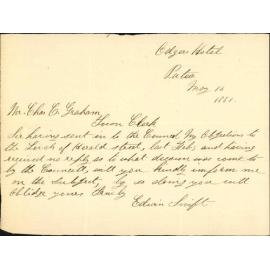 Edgar Hotel
Patea
May 16
1881.
Mr. Chas C. Graham,
Town Clerk
Sir having sent in to the Council my Objections
to the of street, last Feb, and having
received no reply as to what decision was come to
by the Councill, will you kindly inform me
on the Subject, by so doing you will
Oblidge yours Truly
Edwin Swift